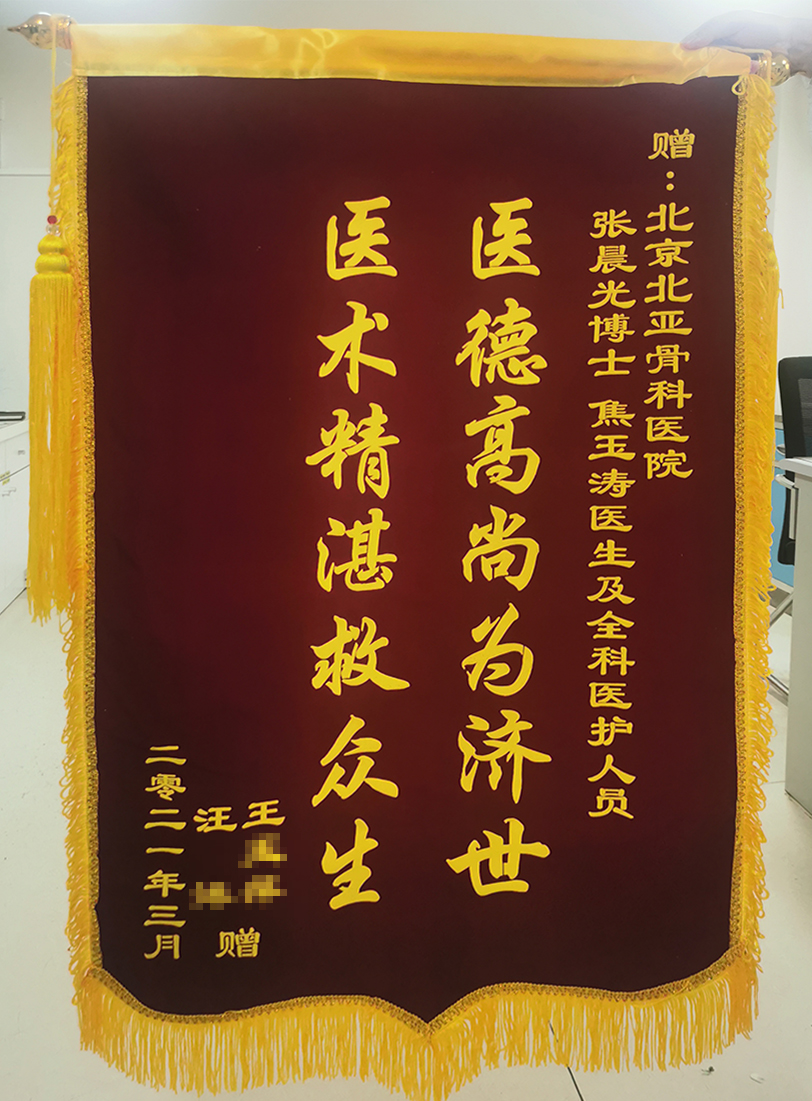 赠：北京北亚骨科医院
张晨光博士 焦玉涛医生及全科医护人员
医德高尚为济世
医术精湛救众生
王
汪
赠
二零二一年三月